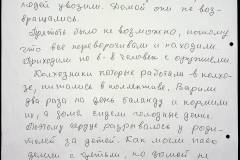 людей увозили. Домой они не воз-
вращались.
Прятать было не возможно, потому
что все переворачивали и находили
Приходили по 6-8 человек с оружием.
Колхозники которые работали в колхо-
зе, питались в коллективе. Варили
два раза на день баланду и кормили
их, а дома сидели голодные дети.
Поэтому сердце разрывалось у роди-
телей за детей. Как могли
домой